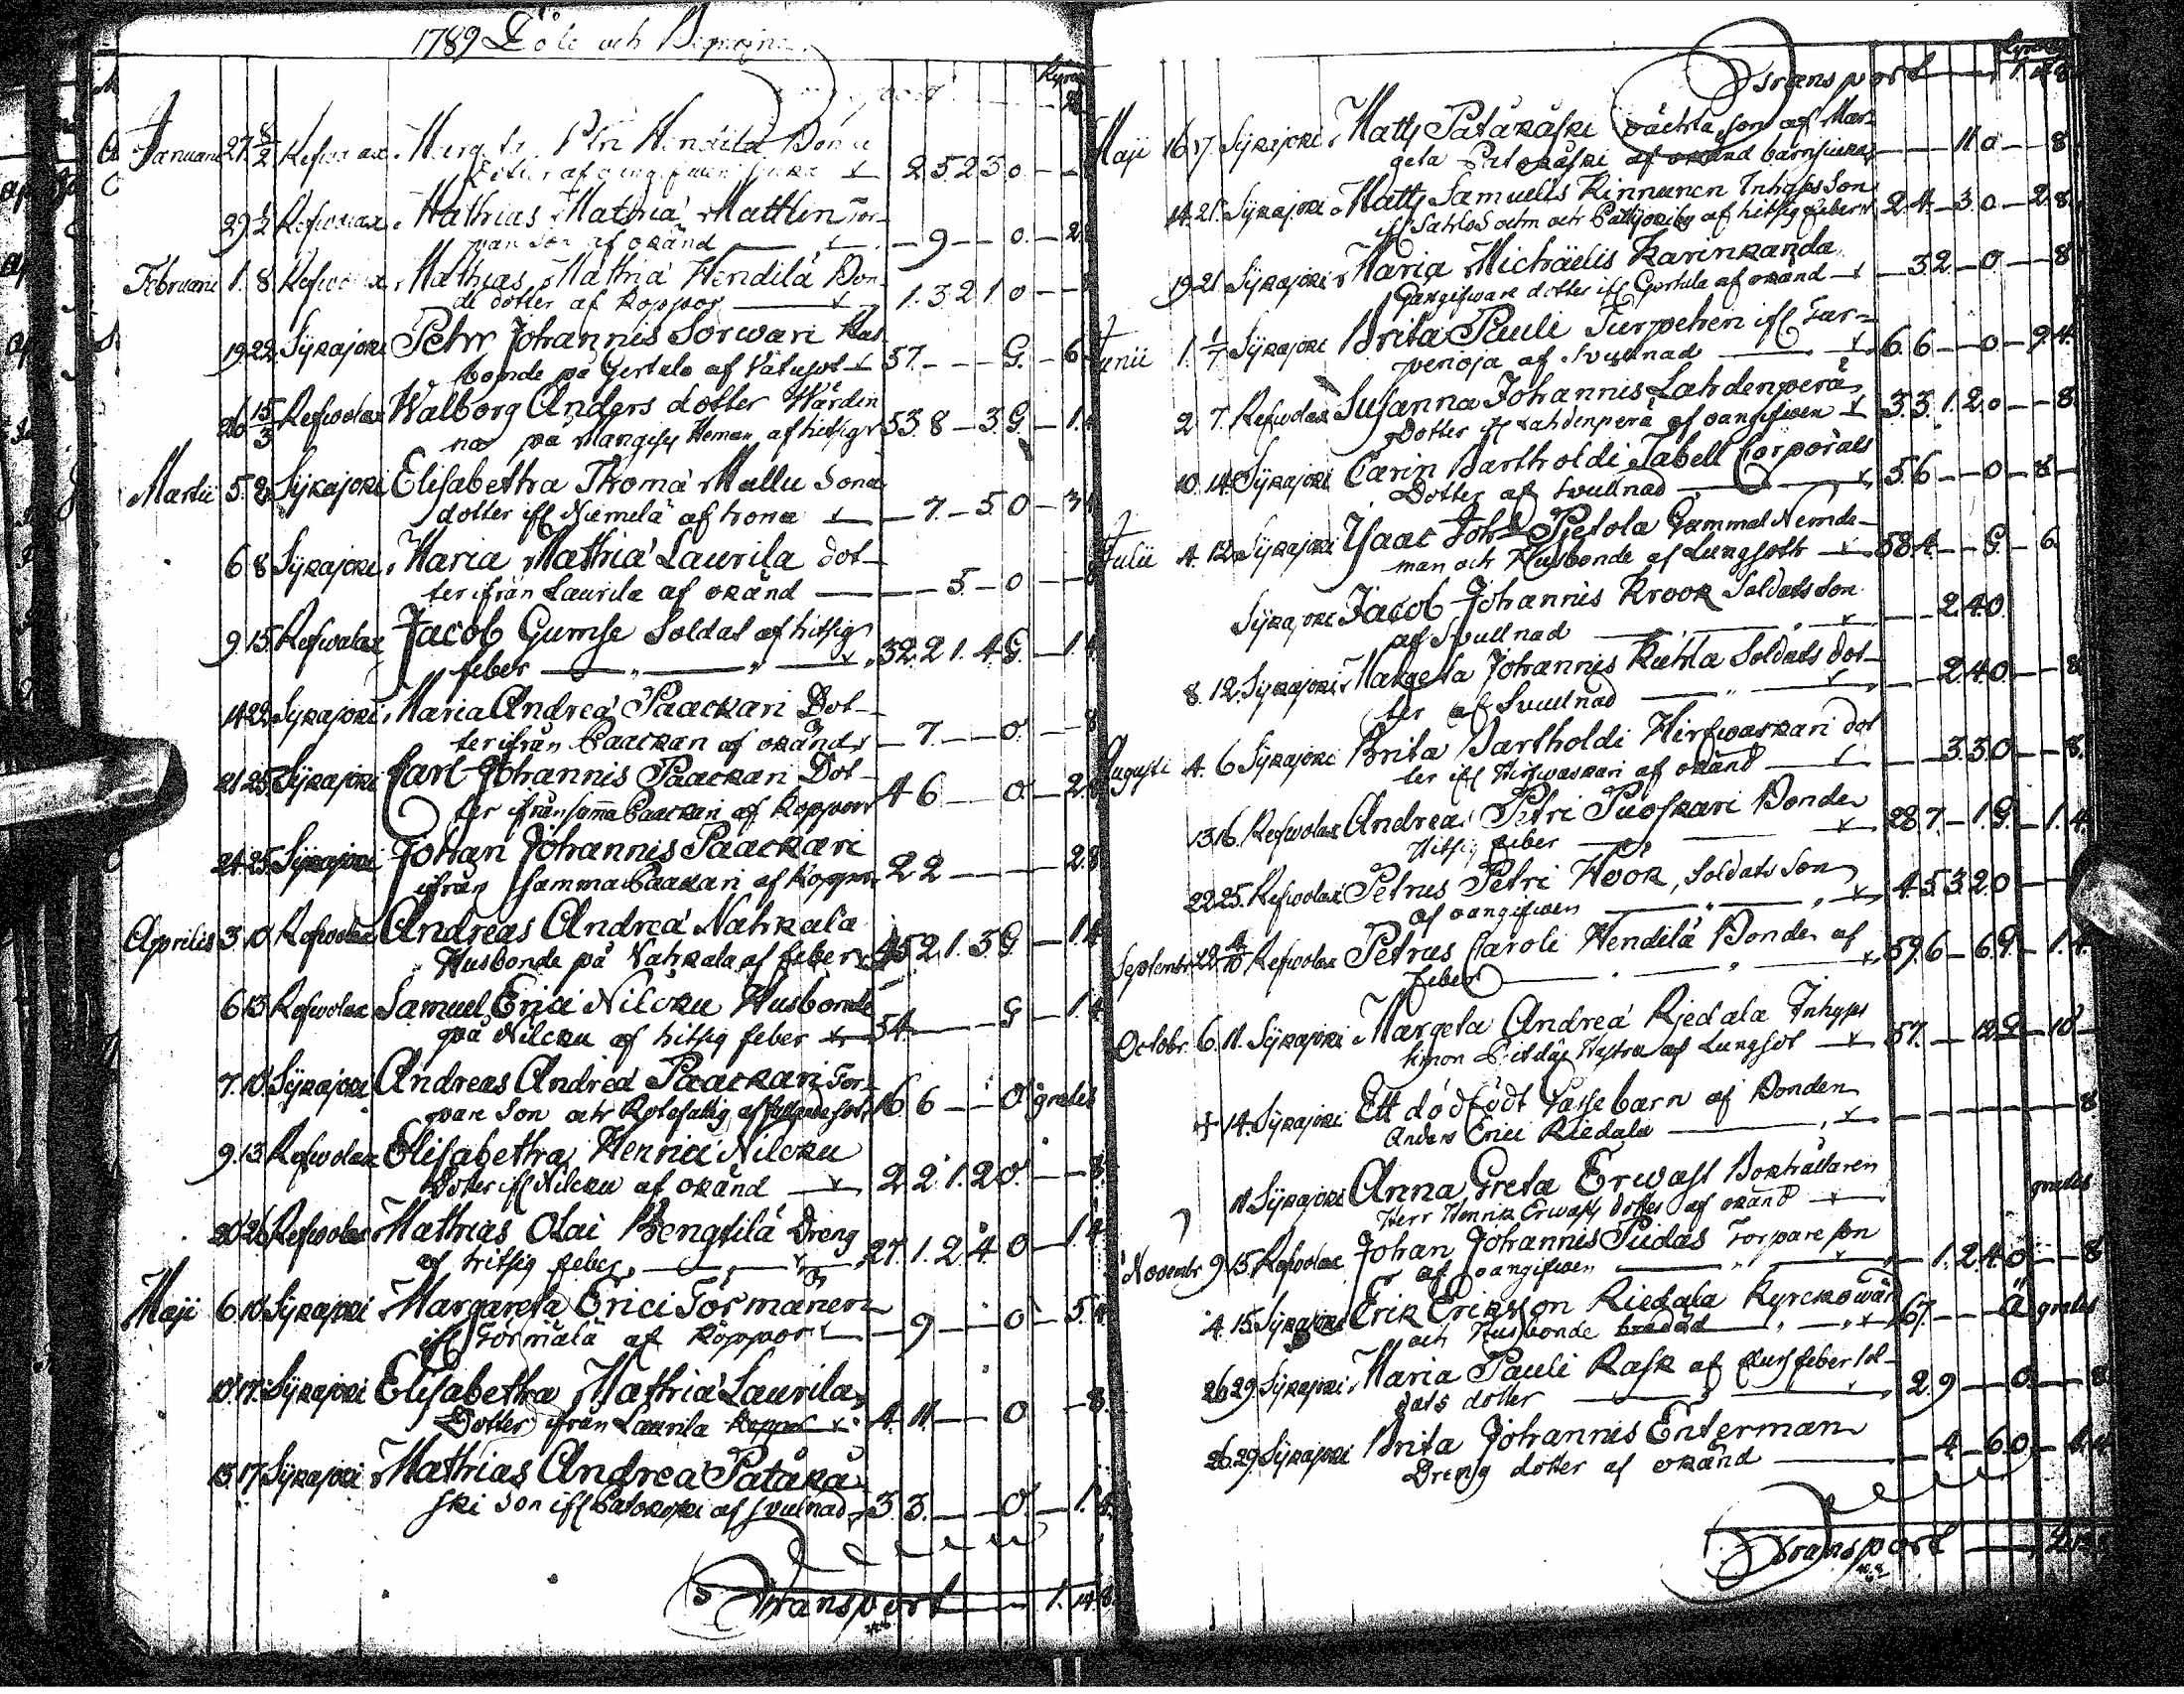 1789 Döde och Begrafne
Kyrck
Januarii 27 8/2 Refwolax Marg Hendilä Bonde
Dotter af oangifwen siuka 2 5 2 3 0
29 8/2 Refwolax Mathias Mathiæ Mattlin Tor-
pare Son af okänd 9 0 2
Februarii 1. 8 Refwolax Mathias Mathiæ Hendilä Bon-
de dotter af Koppor 1. 3 2 1 0
19 22 Sijkajoki Petter Johannis Sorwari Hus
bonde på Gertula af Våtusot 57. G. 6
26 15/3 Refwolax Walborg Anders dotter Wärdin
na på Mangisy Heman af hitsig 53 8 3 G 1.
Martii 5. 8 Sijkajoki Elisabetha Thomæ Mallu Sona
dotter ifl Niemelä af trone 7. 5 0 3
6 8 Sijkajoki Maria Mathiæ Laurila dot-
ter ifrån Laurila af okänd 5 0 8
9. 15 Refwolax Jacob Gumse Soldat af hitsig
feber 32. 2 1. 4 G. 1.
14 22 Sijkajoki Maria Andreæ Paackari Dot-
ter ifrån Paackari af okänd 7. 0. 8
21 25 Sijkajoki Carl Johannis Paackari Dot-
ter ifrån samma Paackari af Koppor 4 6 0. 2.
24 25 Sijkajoki Johan Johannis Paackari
ifrån samma Paackari af Koppor 2 2 2 8
Aprilis 3. 10 Refwolax Andreas Andreæ Nahkala
Husbonde på Nahkala af feber 45 2 1. 3 G 1. 4
6 13 Refwolax Samuel Erici Nilcku Husbonde
på Nilcku af hitsig feber 54. G 1. 4
7. 10 Sijkajoki Andreas Andreæ Paackari Tor-
pare Son och Rotefattig af fallandesot 16 6 0 gratis
9. 13 Refwolax Elisabetha Henrici Nilcku
Dotter ifl Nilcku af okänd 2 2 1. 2 0. 8
20 26 Refwolax Mathias Olai Bengtilä Dreng
af hitsig feber 27. 1. 2 4 0 1. 4
Maji 6. 10 Sijkajoki Margareta Erici Törmänen
ifl Törmälä af Koppor 9 0 5. 4
10. 17. Sijkajoki Elisabetha Mathiæ Laurila
Dotter ifrån Laurila Koppor 4. 11. 0 8.
13 17 Sijkajoki Mathias Andreæ Patåka
ski Son ifl Patokoski af svulnad 3. 3. 0. 1. 4.
Transport 1. 14. 8.
Kyrck
Transport 1. 14 8
Maji 16 17. Sijkajoki Matts Patåkaski oächta son af Mar-
geta Patokaski af okänd barnsiuka 11 0 8
14. 21. Sijkajoki Matts Samuelis Kinnunen Inhyses Son
af hitsig feber 2. 4. 3 0 2 8
19 21 Sijkajoki Maria Michaëlis Karinkanda
Gangifware dotter ifl Gertula af okänd 3 2 0 8
Junii 1. 1/7 Sijkajoki Brita Pauli Turpehen ifl Tur-
perioja af Svullnad 6 6 0 9 4.
2 7. Refwolax Susanna Johannis Lahdenperä
Dotter ifl Lahdenperä af oangifwen 3 3. 1. 2 0 8.
10. 14 Sijkajoki Carin Bartholdi Tabell Corporals
Dotter af Svullnad 5 6 0 8
Julii 4. 12. Sijkajoki Isaac Joh: Pietola Gammal Nemde-
man och Husbonde af Lungsoth 58 4. G. 6
Sijkajoki Jacob Johannis Krook Soldats Son
af Svullnad 2 4 0
8. 12. Sijkajoki Margeta Johannis Kuhla Soldats dot-
ter af Svullnad 2 4 0 8
Augusti 4. 6 Sijkajoki Brita Bartholdi Hirswaskari dot
ter ifl Hirswaskari af okänd 3 3 0 8.
13 16. Refwolax Andreas Petri Puoskari Bonde
Hitsig feber 28 7. 1. G. 1. 4
22 25. Refwolax Petrus Petri Hook, Soldats Son
af oangifwen 4. 5 3 2 0
Septembr 22 4/10 Refwolax Petrus Caroli Hendilä Bonde af
feber 59. 6 6 G. 1. 4.
Octobr. 6. 11. Sijkajoki Margeta Andreæ Riedala Inhyses
Hustru af Lungsot 57. 12 G 10
14. Sijkajoki Ett dödfödt Gosse barn af Bonden
Anders Erici Riedala 8
11 Sijkajoki Anna Greta Erwast Bokhållaren
Herr Henrik Erwasts dotter af okänd gratis
Novembr 9. 15. Refwolax Johan Johannis Pudas Torpare son
af oangifwen 1. 2 4. 0 8
4. 15 Sijkajoki Erik Ericksson Riedala Kyrckowärd
och Husbonde brådöd 67. Ä gratis
26 29. Sijkajoki Maria Pauli Rask af feber sol-
dats dotter 2. 9 0. 8
26. 29. Sijkajoki Brita Johannis Enterman
Dreng dotter af okänd 4 6 0
Transport